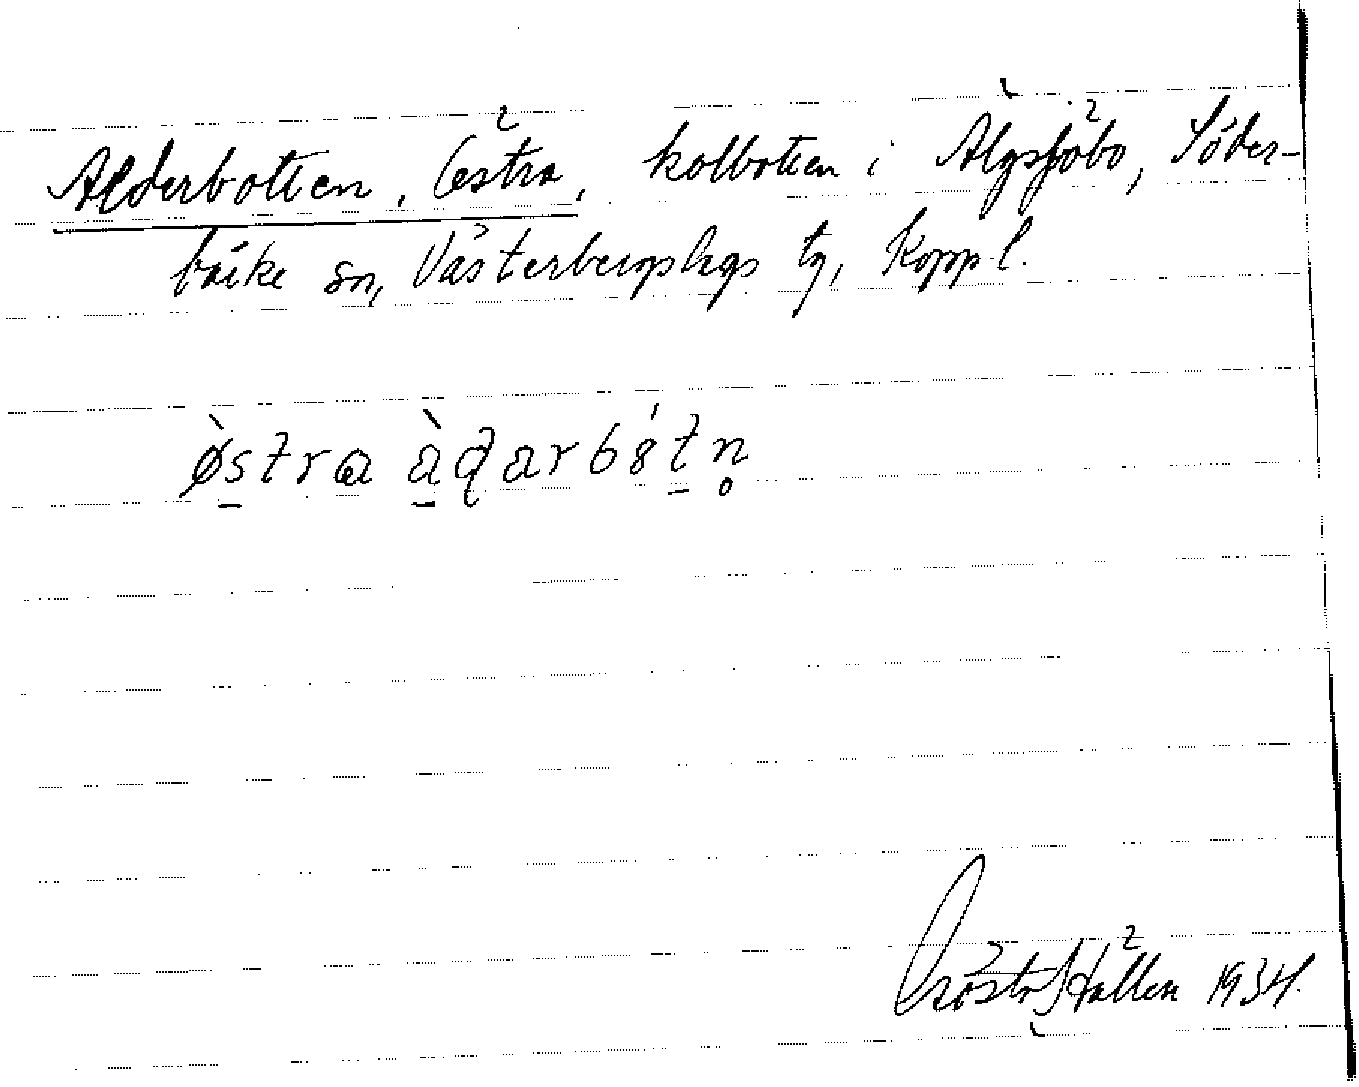 Alderbotten, Östra, kolbotten i Älgsjöbo, Söder-
bärke sn, Västerbergslags tg, Kopp. l.
østra àdarbótn
Hållen 1934.